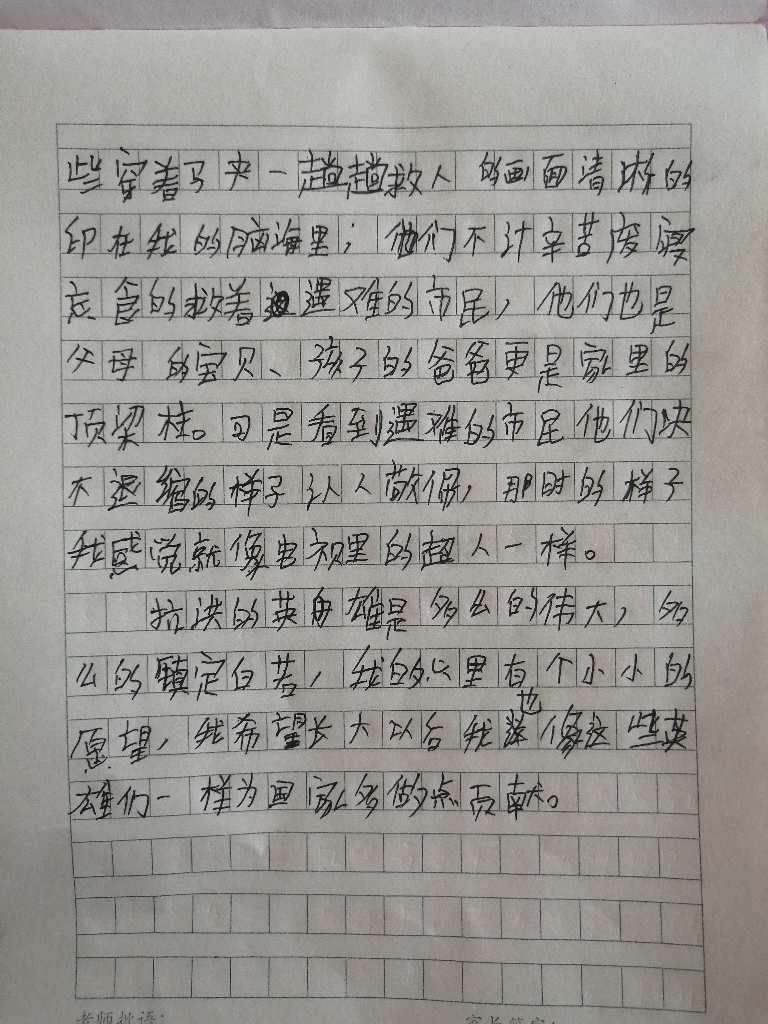 些穿着马夹一趟趟救人的画面清淅的
印在我的脑海里；他们不计辛苦废寝
忘食的救着遇难的市民，他们也是
父母的宝贝、孩子的爸爸更是家里的
顶梁柱。可是看到遇难的市民他们决
不退缩的样子认人敬佩，那时的样子
我感觉就像电视里的超人一样。
抗洪的英勇雄是多么的伟大，多
么的镇定自若，我的心里有个小小的
愿望，我希望长大以后我也像这些英
雄们一样为国家多做点贡献。
老师批语：
家长签字：